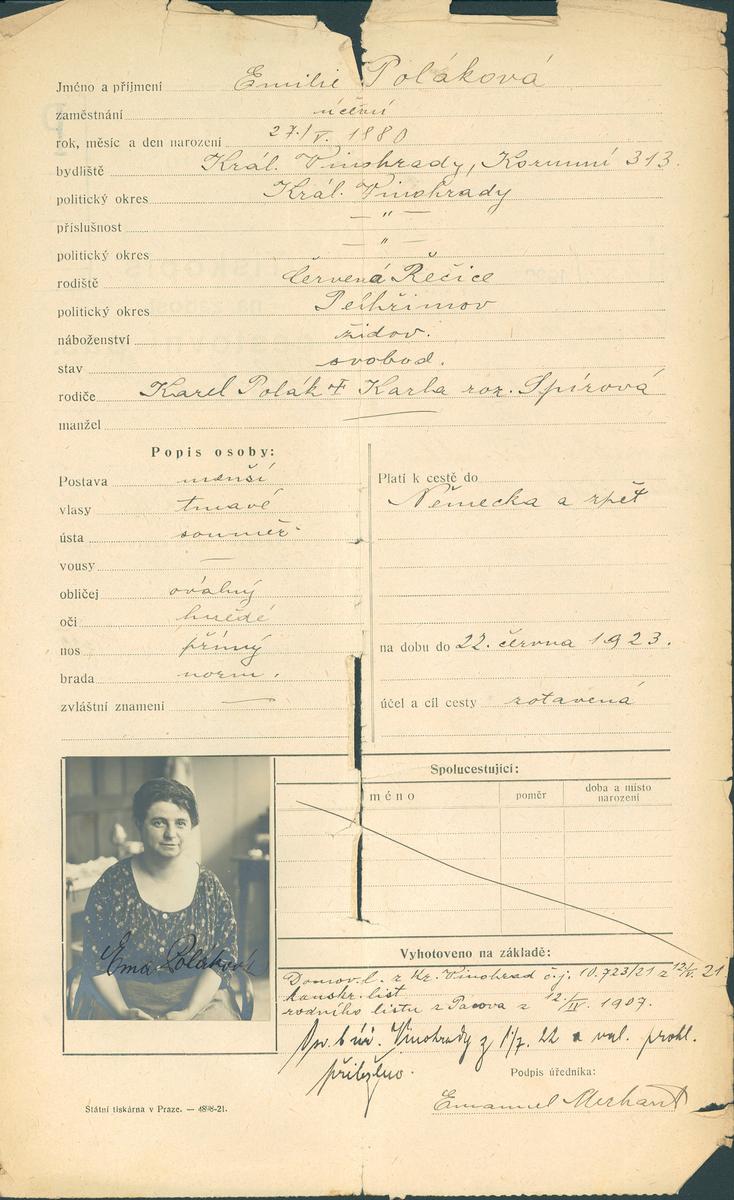 Jméno a příjmení Emilie Poláková
zaměstnání účetní
rok, měsíc a den narození 27./V. 1880
bydliště Král. Vinohrady, Korunní 313.
politický okres Král. Vinohrady
příslušnost — " —
politický okres — " —
rodiště Červená Řečice
politický okres Pelhřimov
náboženství židov.
stav svobod.
rodiče Karel Polák + Karla roz. Spírová
manžel —
Popis osoby:
Postava menší
vlasy tmavé
ústa souměr.
vousy —
obličej oválný
oči hnědé
nos přímý
brada norm.
zvláštní znamení —
Platí k cestě do
Německa a zpět
na dobu do 22. června 1923.
účel a cíl cesty zotavená
Ema Poláková
Spolucestující:
jméno poměr doba a místo narození
Vyhotoveno na základě:
Domov. l. z Kr. Vinohrad č.j. 10.723/21 z 12/V. 21
rodného listu z Pacova z 12/IV. 1907.
Vinohrady z 1/7. 22 a
Podpis úředníka:
Emanuel
Státní tiskárna v Praze. — 4898-21.